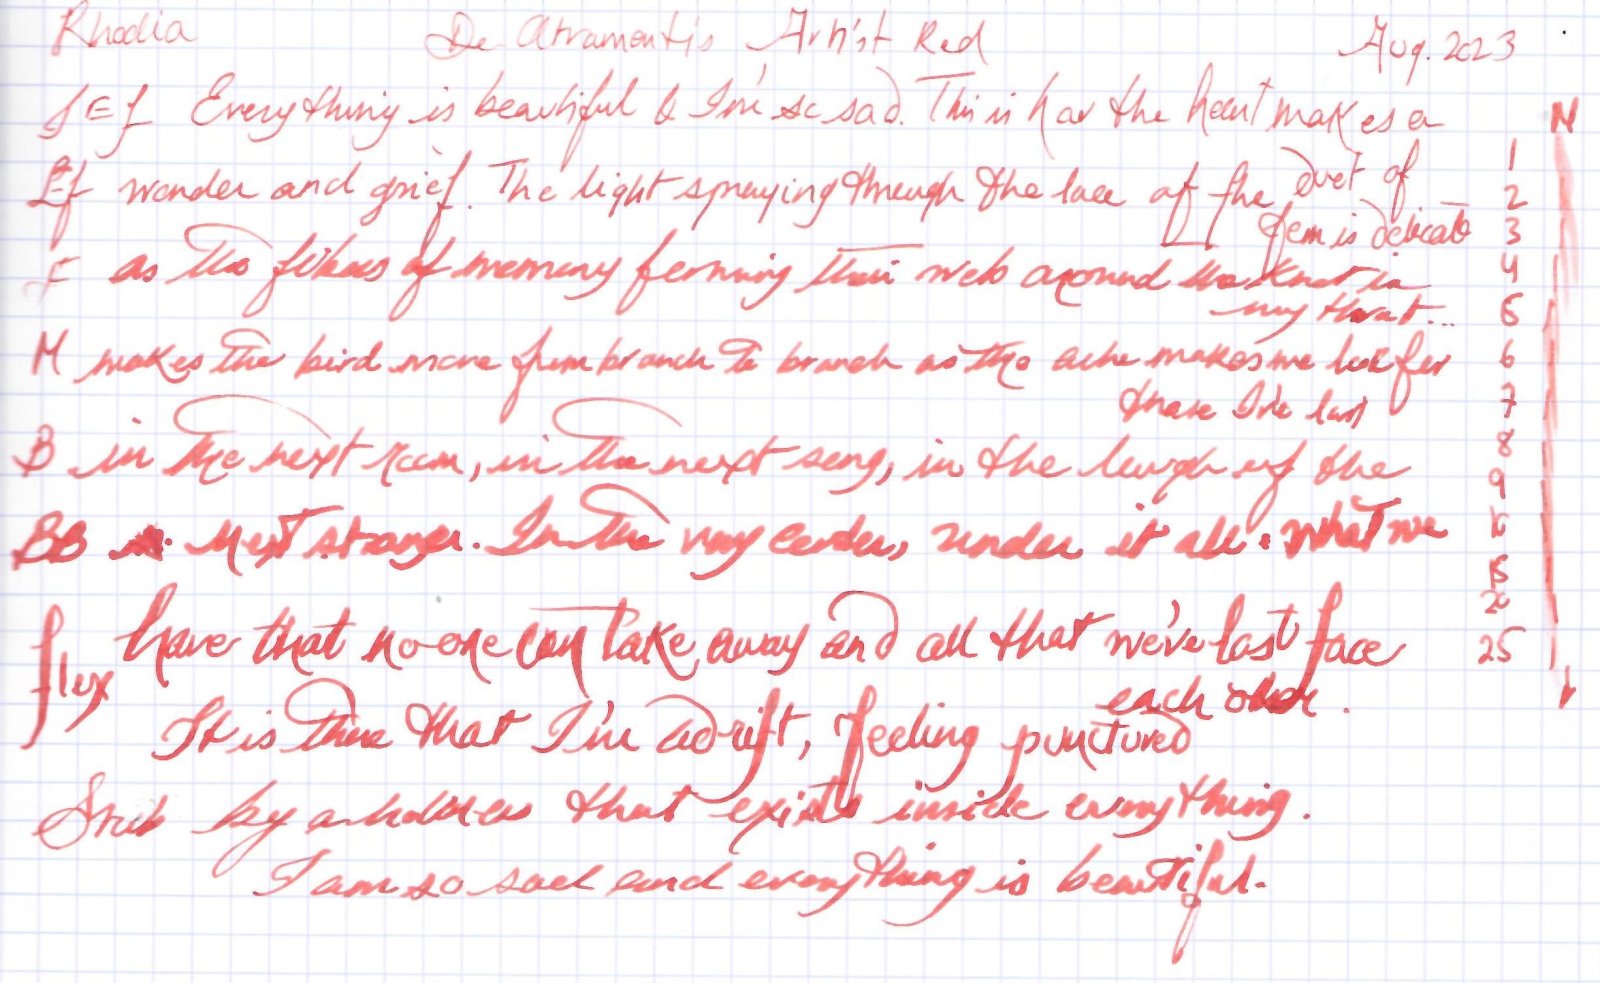 Rhodia De Atramentis Artist Red Aug. 2023
fEf Everything is beautiful & I'm so sad. This is how the heart makes a
Ef wonder and grief. The light spraying through the lace of the duet of
fern is delicate
F as the fibres of memory forming their web around the knot in
my throat...
M makes the bird move from branch to branch as the ache makes me look for
those I've lost
B in the next room, in the next song, in the laugh of the
BB next stranger. In the very center, under it all. what we
flex have that no-one can take away and all that we've lost face
each other.
It is there that I'm adrift, feeling punctured
Stub by a holiness that exists inside everything.
I am so sad and everything is beautiful.
M
1
2
3
4
5
6
7
8
9
10
15
20
25